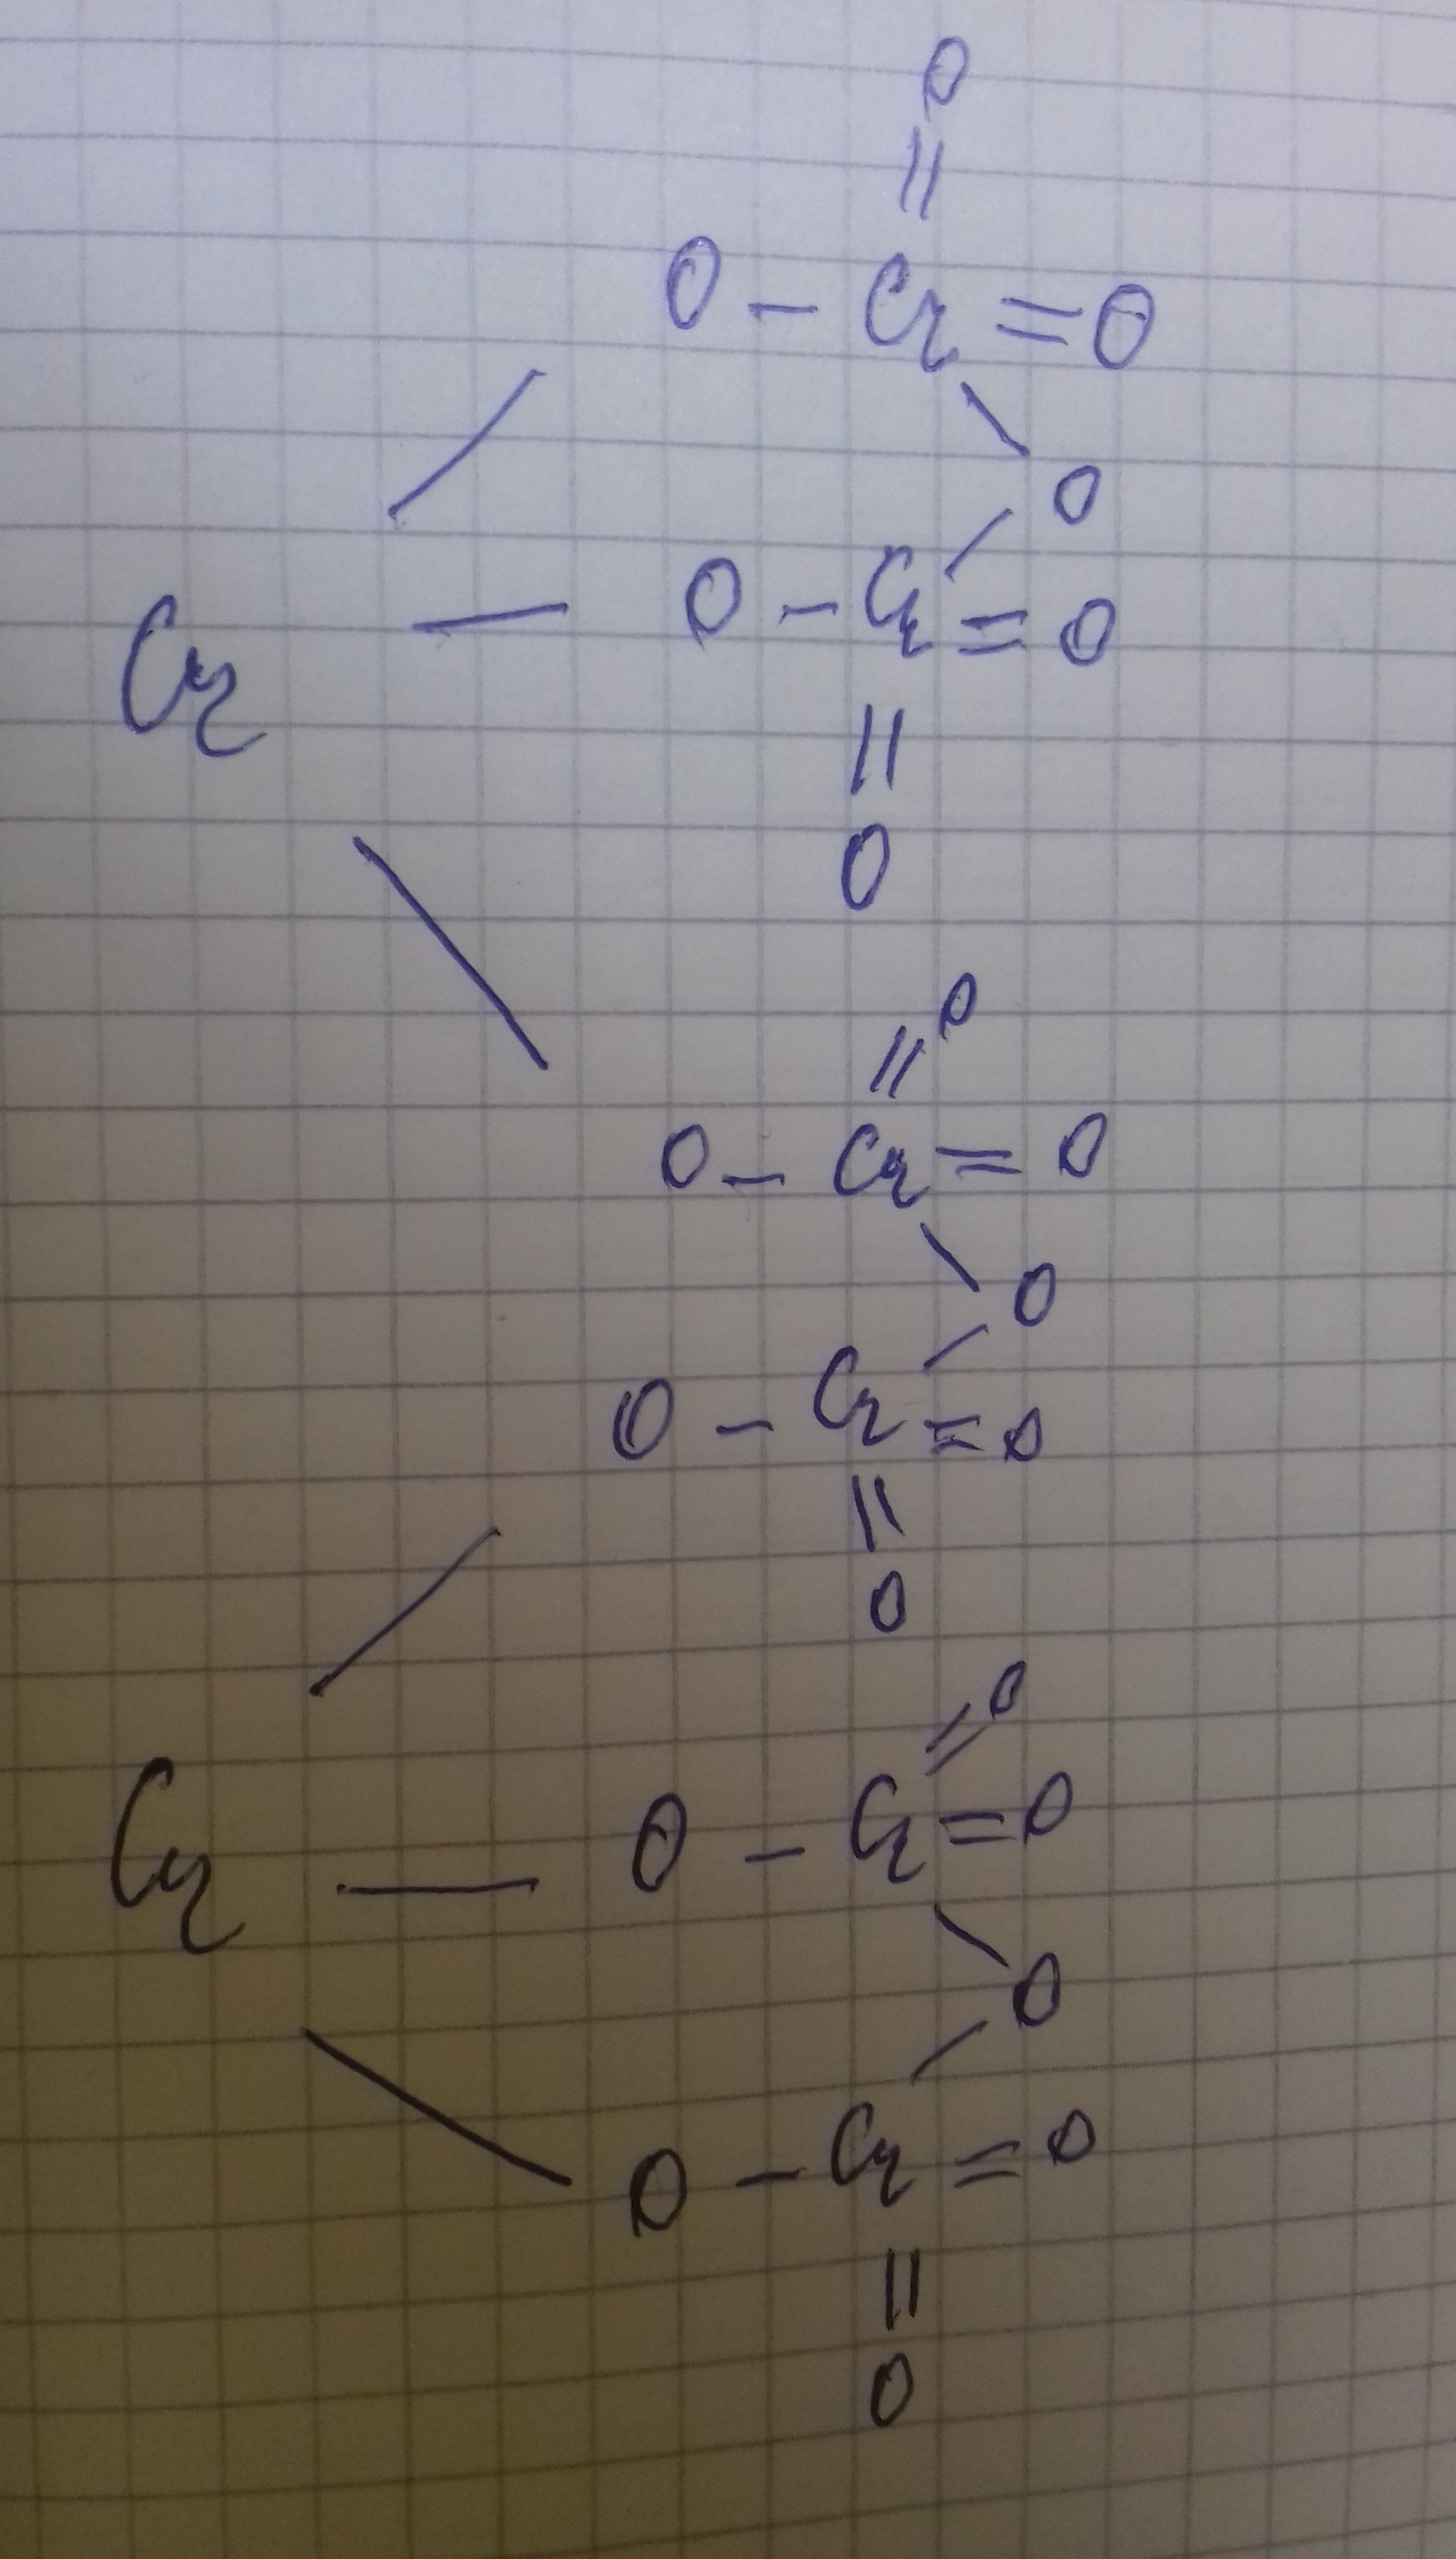 O
||
O – Cr = O
O
Cr
O – Cr = O
||
O
O
||
O – Cr = O
O
O – Cr = O
||
O
O
||
Cr
O – Cr = O
O
O – Cr = O
||
O